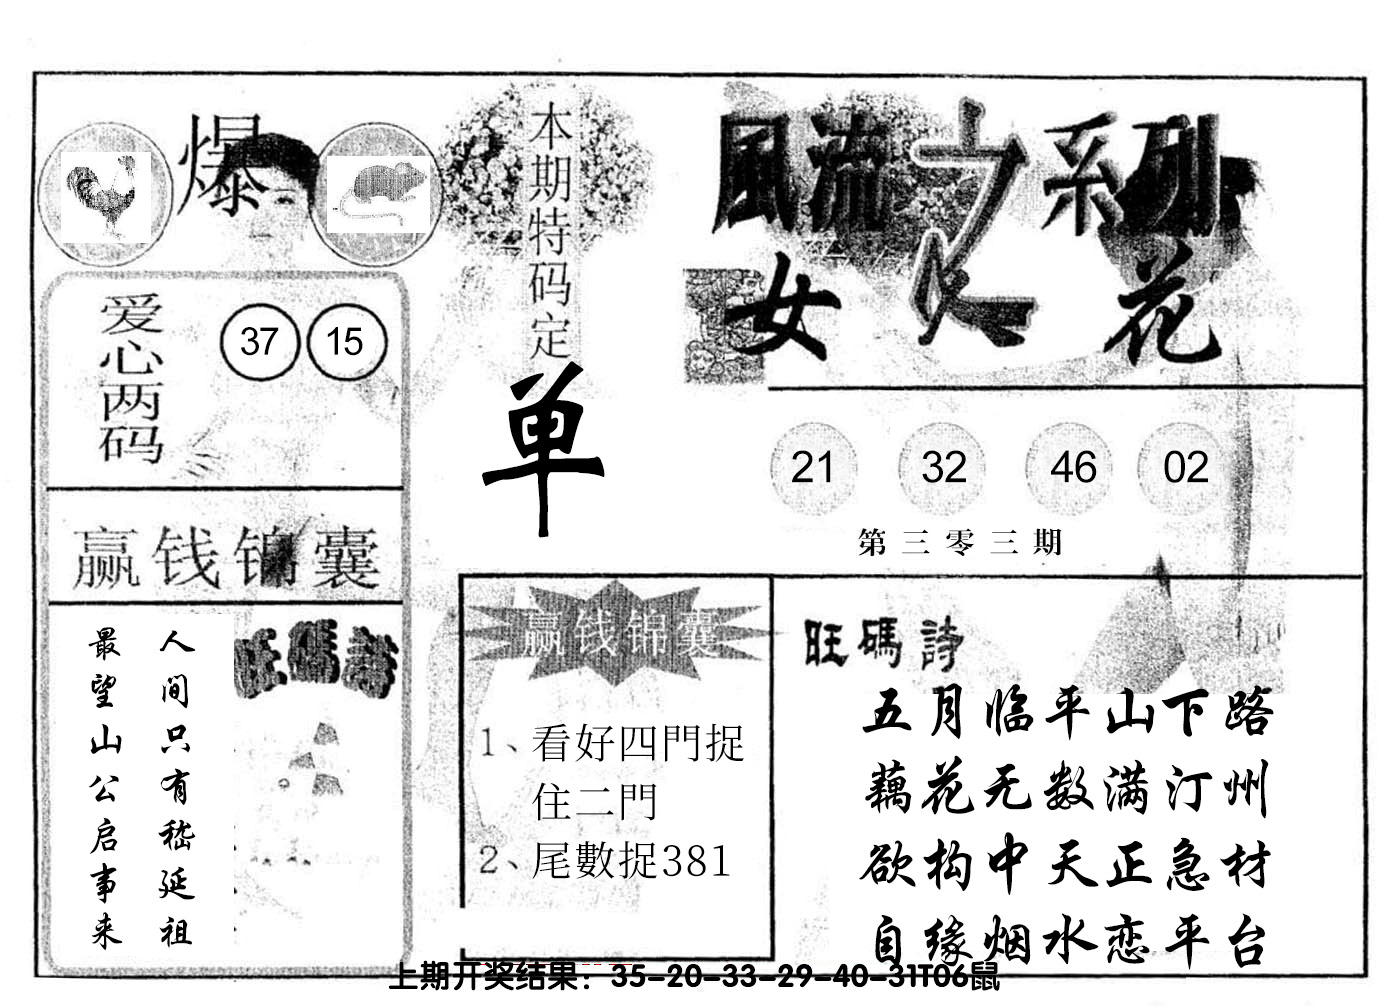 爆
爱心两码
37 15
赢钱锦囊
人间只有嵇延祖
最望山公启事来
旺碼詩
本期特码定
单
風流之系列
女人花
21 32 46 02
第三零三期
赢钱锦囊
1、看好四門捉
住二門
2、尾數捉381
旺碼詩
五月临平山下路
藕花无数满汀州
欲构中天正急材
自缘烟水恋平台
上期开奖结果：35-20-33-29-40-31T06鼠